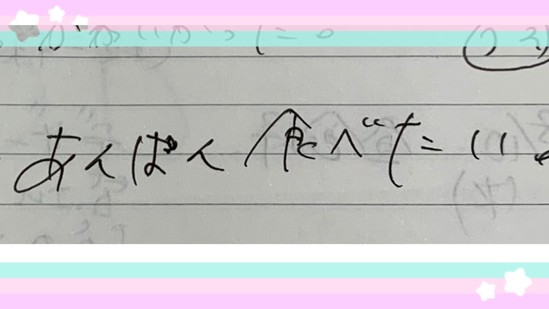 あんぱん食べたい